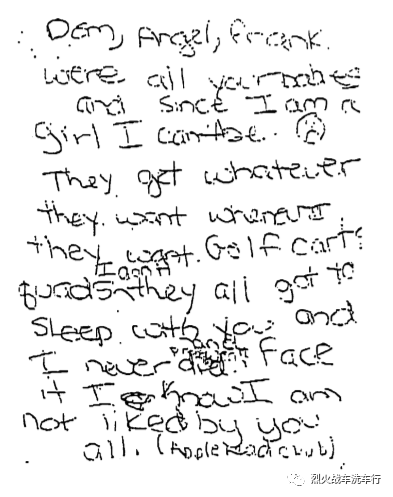 Dom, Angel, Frank.
were all your babies
and since I am a
girl I cantbe..
They get whatever
they want whenever
they want. Golf carts
I don't
quads they all got to
sleep with you and
I never did. Face
it I know I am
not liked by you
all. (Applehead club)
烈火战车洗车行